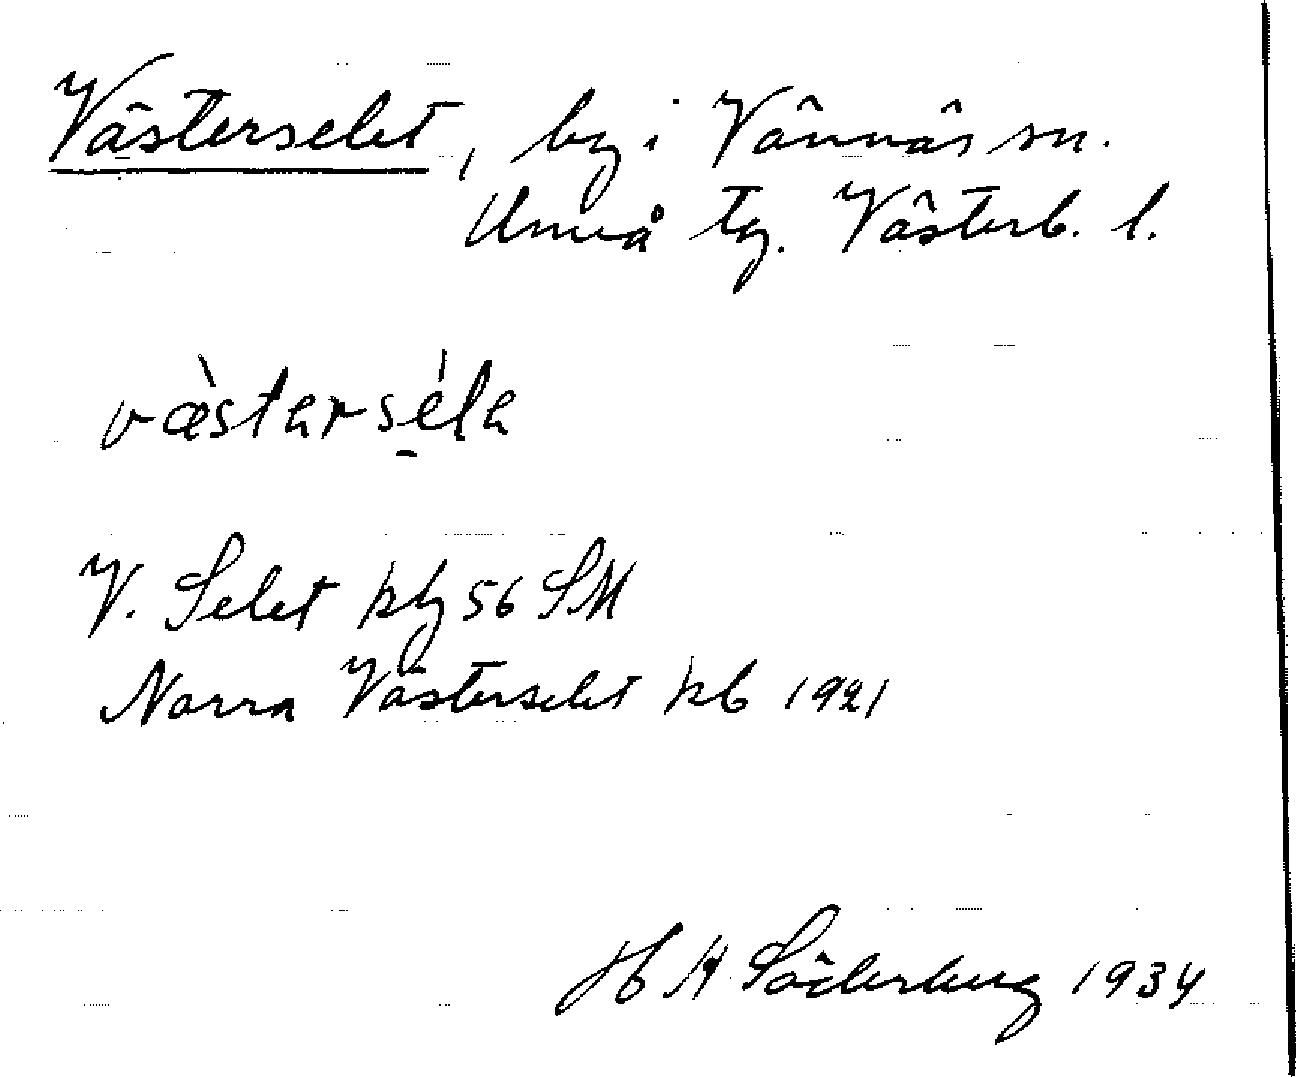 Västerselet, by i Vännäs sn.
Umeå tg. Västerb. l.
væ̀starsе́la
V. Selet kbg 56 SM
Norra Västerselet kb 1921
H A Söderberg 1934